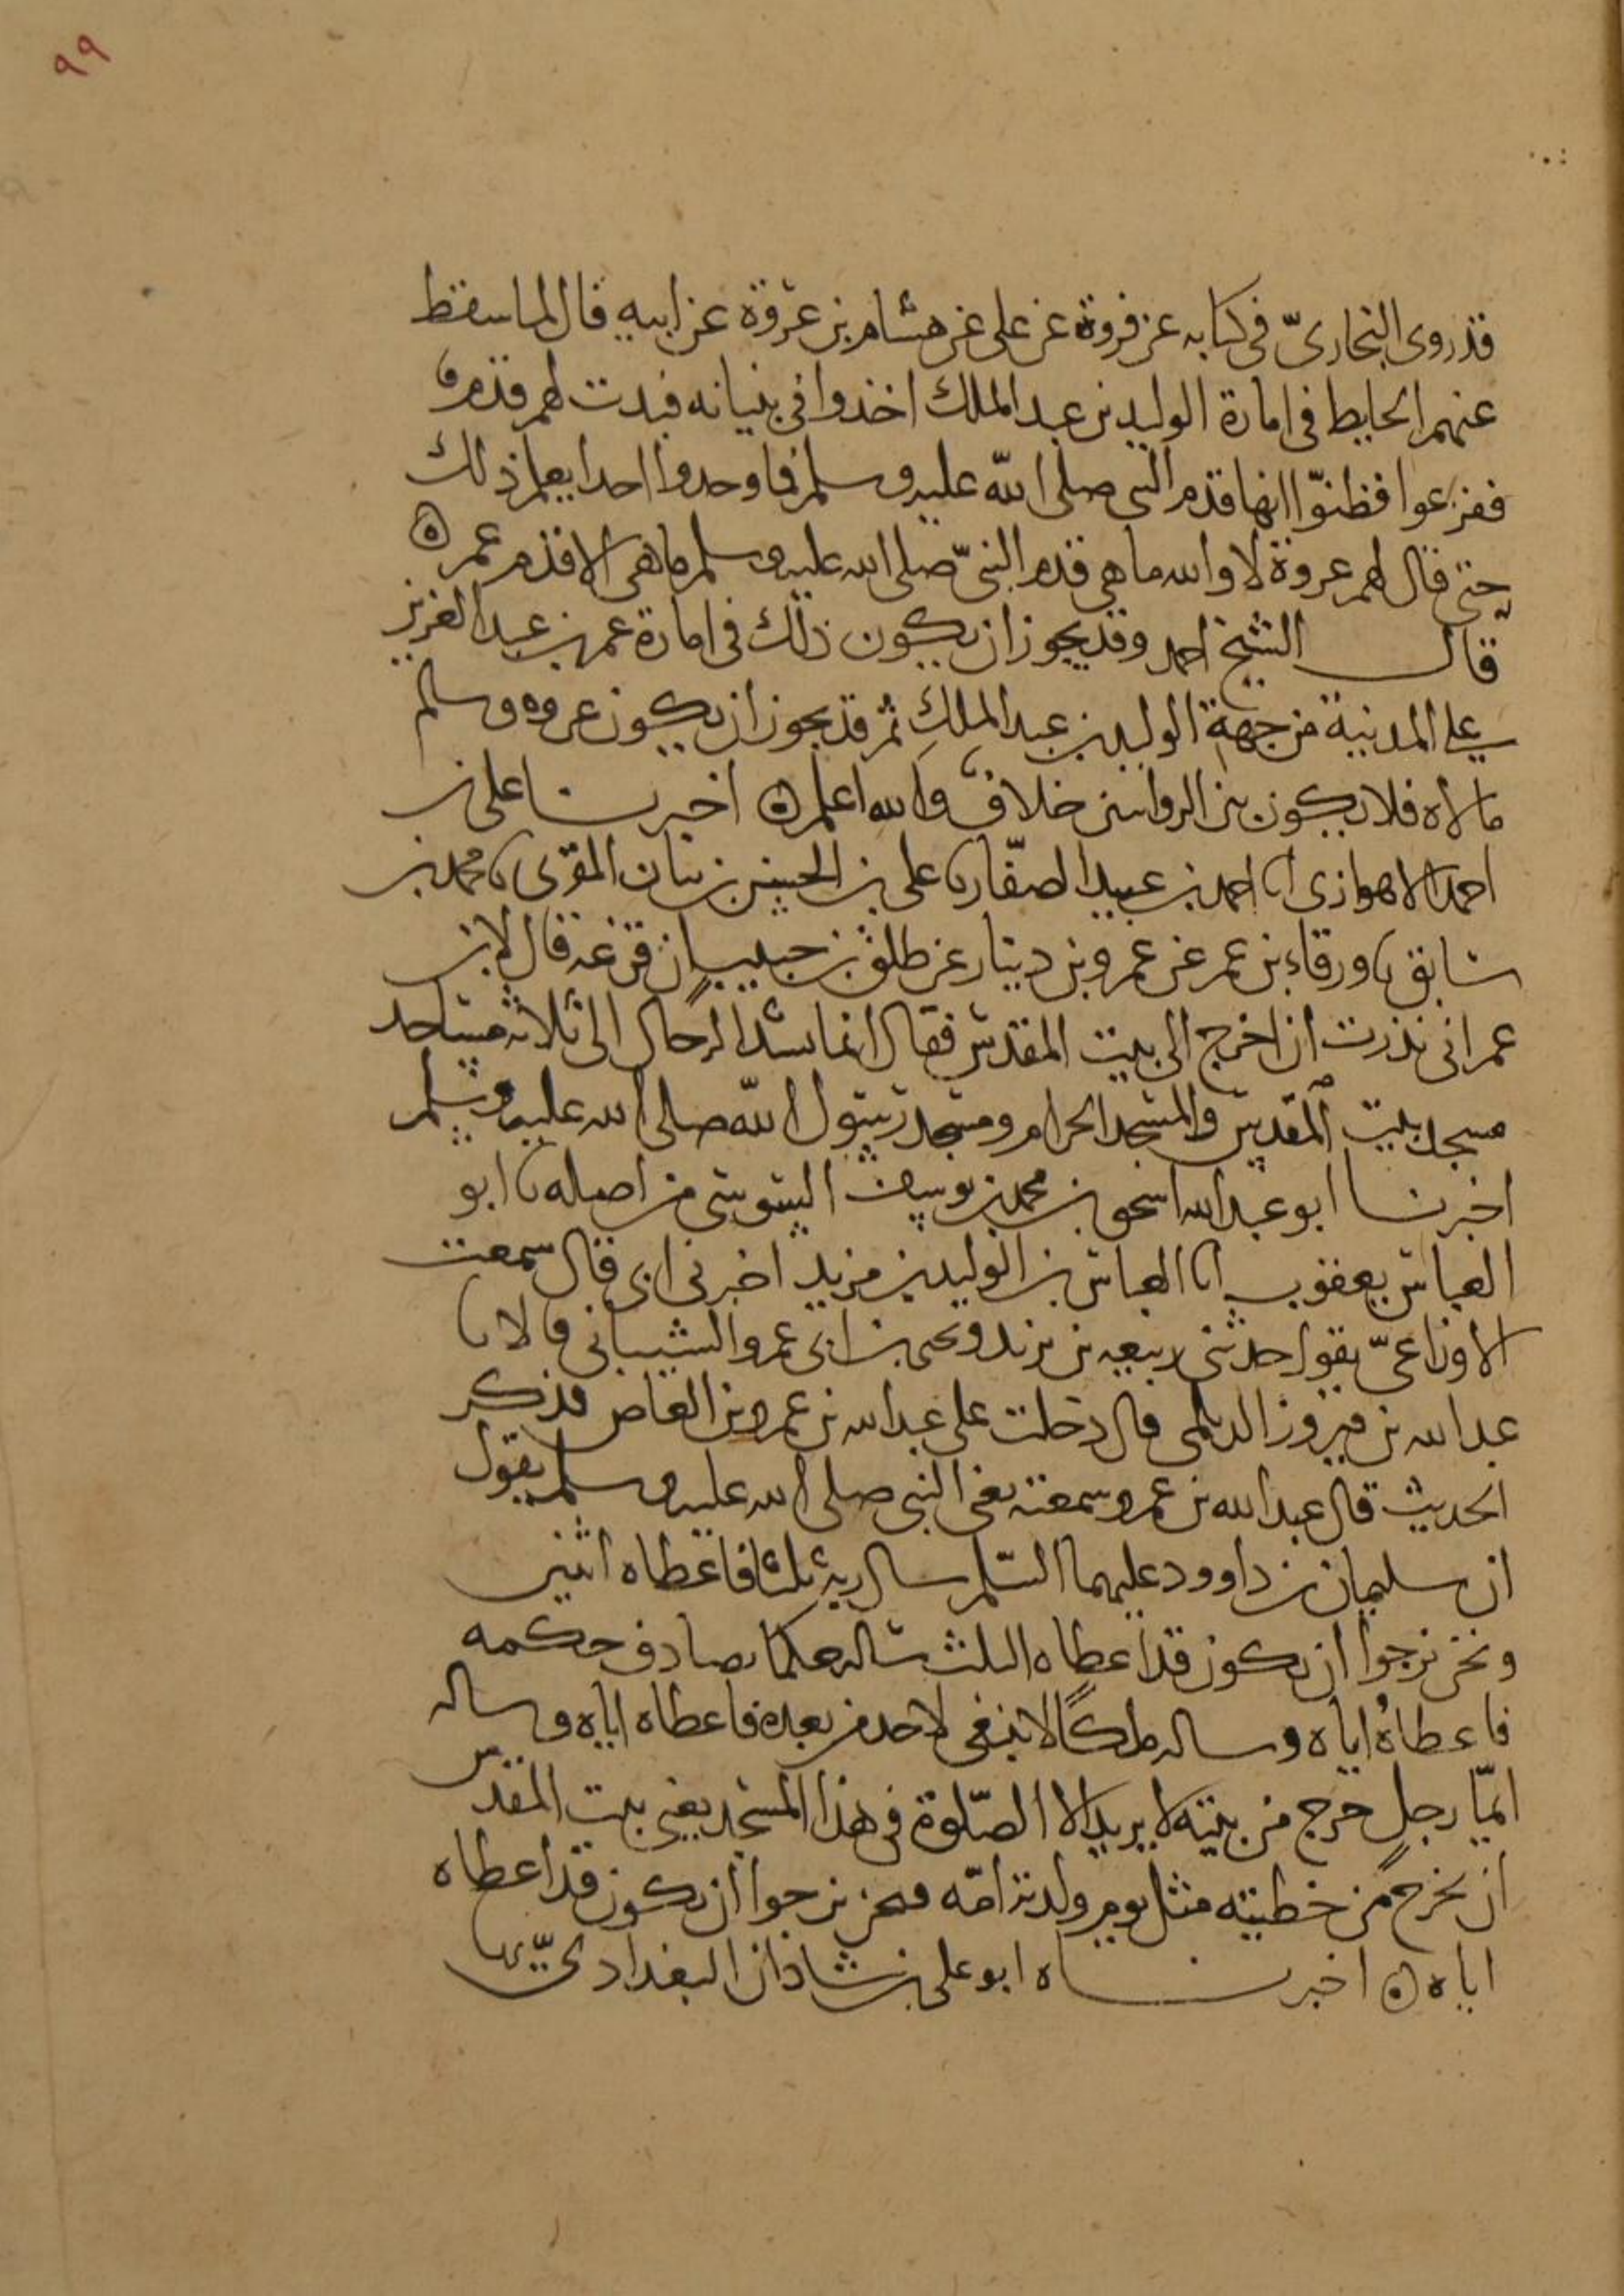 ٩٩
قد روى البخاريّ في كتابه عن فروة عن علي عن هشام بن عروة عن ابيه قال لما سقط
عنهم الحايط في امارة الوليد بن عبد الملك اخذوا في بنيانه فبدت لهم قدم
ففزعوا فظنّوا انها قدم النبي صلى الله عليه وسلم فما وجدوا احدا يعلم ذلك
حتى قال لهم عروة لا والله ما هي قدم النبيّ صلى الله عليه وسلم ما هي الا قدم عمر ه
قال الشيخ احمد وقد يجوز ان يكون ذلك في امارة عمر بن عبد العزيز
على المدينة من جهة الوليد بن عبد الملك ثم قد يجوز ان يكون عروه وسالم
قالاه فلا يكون بين الروايتين خلاف والله اعلم ه اخبرنا علي بن
احمد الاهوازي انا احمد بن عبيد الصفّار نا علي بن الحسين بن بيان المقرى نا محمد بن
سابق نا ورقاء بن عمر عن عمرو بن دينار عن طلق بن حبيب ان قزعه قال لابن
عمر اني نذرت ان اخرج الى بيت المقدس فقال انما تشد الرحال الى ثلاثه مساجد
مسجد بيت المقدس والمسجد الحرام ومسجد رسول الله صلى الله عليه وسلم
اخبرنا ابو عبد الله اسحق بن محمد بن يوسف السوسي من اصله نا ابو
العباس يعقوب انا العباس بن الوليد بن مزيد اخبرني ابي قال سمعت
الاوزاعيّ يقول حدثني ربيعه بن يزيد ويحيى بن ابي عمرو الشيباني قالا نا
عبد الله بن فيروز الديلمي قال دخلت على عبد الله بن عمرو بن العاص فذكر
الحديث قال عبد الله بن عمرو سمعته يعني النبي صلى الله عليه وسلم يقول
ان سليمان بن داوود عليهما السّلم سال ربه ثلثا فاعطاه اثنين
ونحن نرجوا ان يكون قد اعطاه الثلث ساله حكما يصادف حكمه
فاعطاهُ اياه وساله ملكًا لا ينبغي لاحد من بعده فاعطاه اياه وساله
ايمّا رجلٍ خرج من بيته لا يريد الا الصّلوة في هذا المسجد يعني بيت المقدس
ان يخرج من خطيته مثل يوم ولدته امّه فنحن نرجوا ان يكون قد اعطاه
اياه ه اخبرناه ابو علي بن شاذان البغداديّ نا